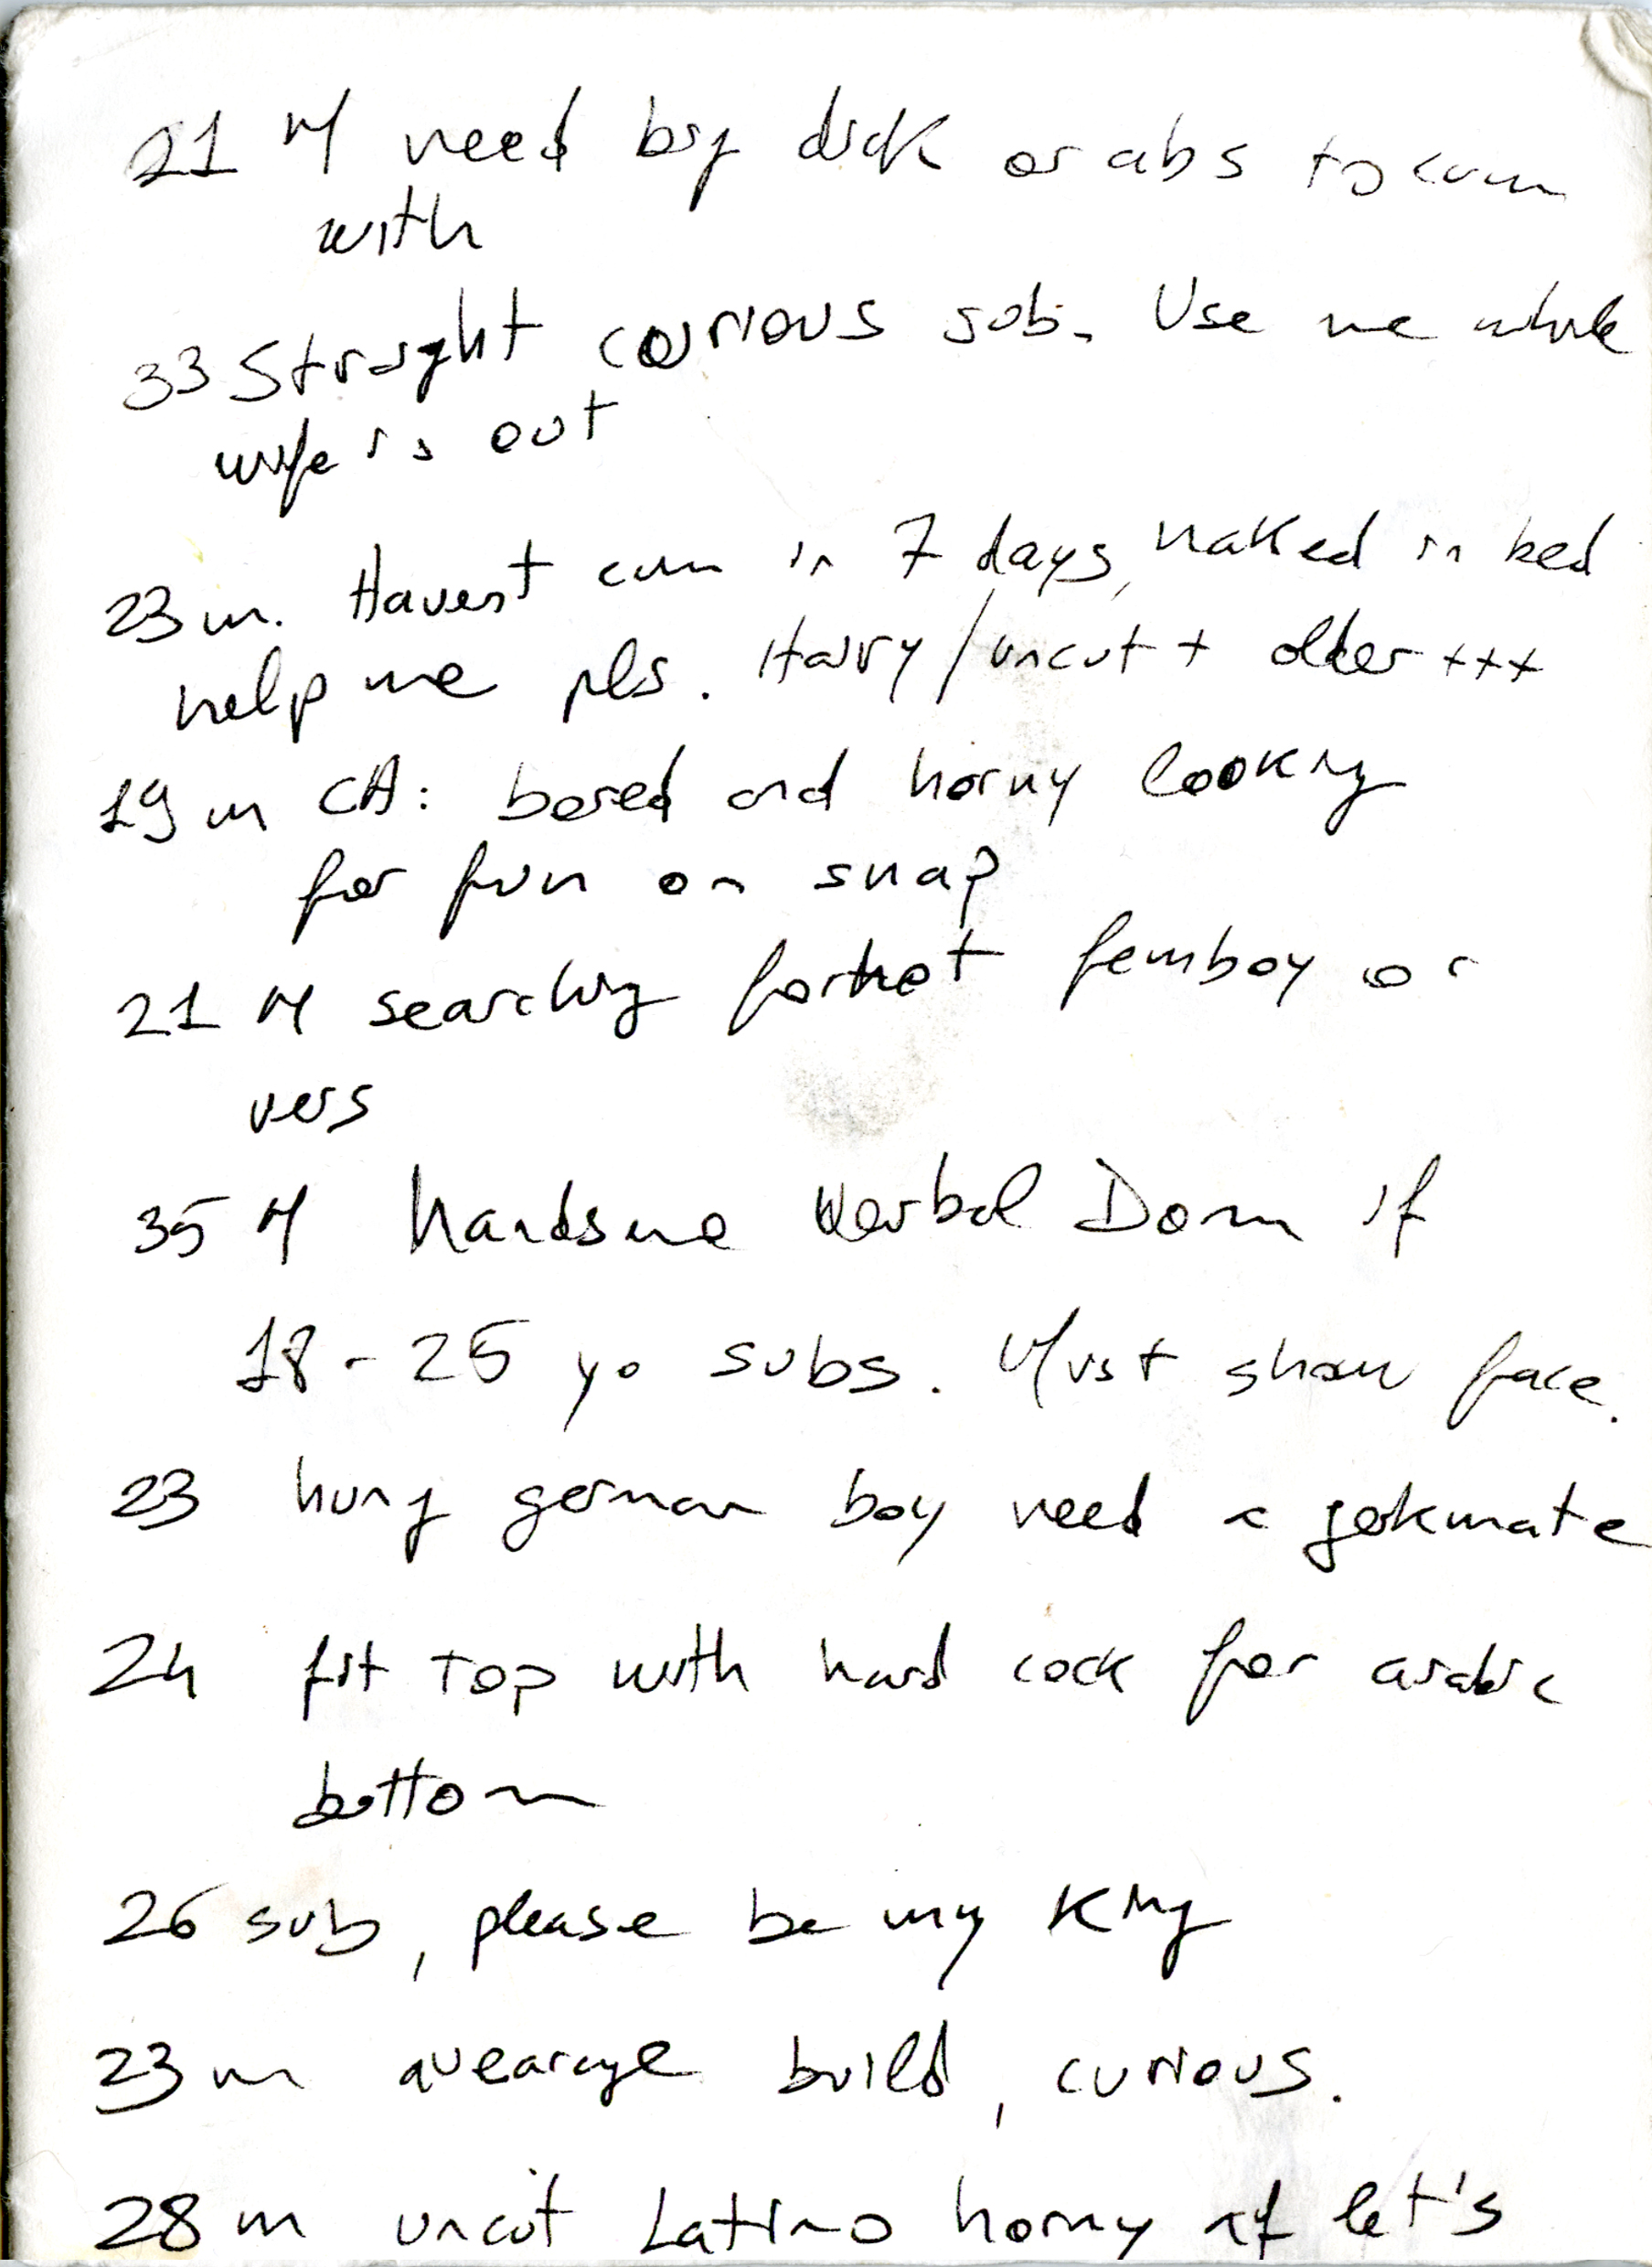 21 M need big dick or abs to cum
with
33 Straight courious sub. Use me while
wife is out
23 m. Havent cum in 7 days, naked in bed
help me pls. Hairy/uncut + older +++
19 m CA: bored and horny looking
for fun on snap
21 M searching for hot femboy or
vers
35 M handsme Verbal Dom if
18-25 yo subs. Must show face.
23 hung german boy need a jerkmate
24 fit top with hard cock for arabic
bottom
26 sub, please be my King
23 m avearage build, curious.
28 m uncut Latino horny af let's